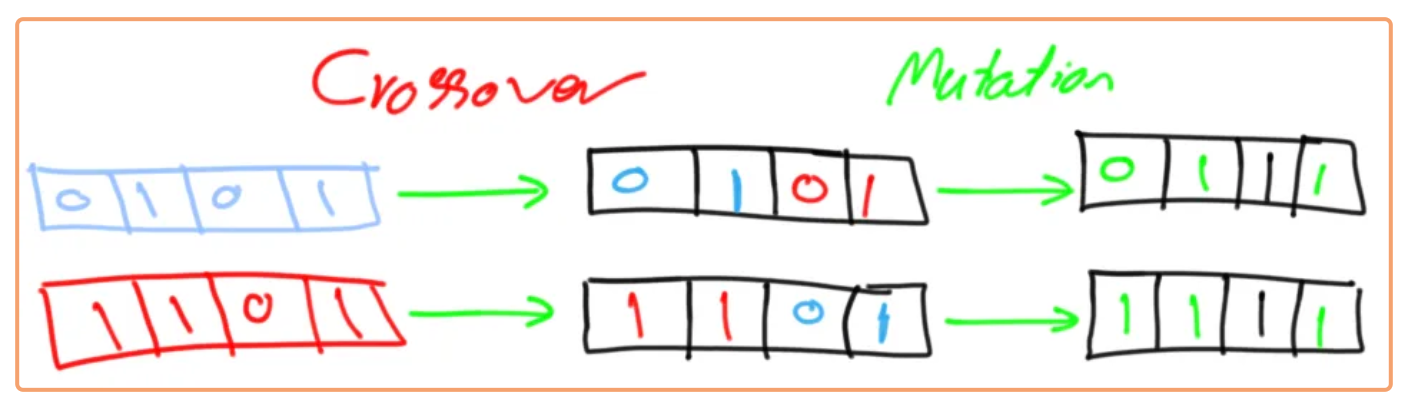 Crossover Mutation
0 1 0 1 0 1 0 1 0 1 1 1
1 1 0 1 1 1 0 1 1 1 1 1